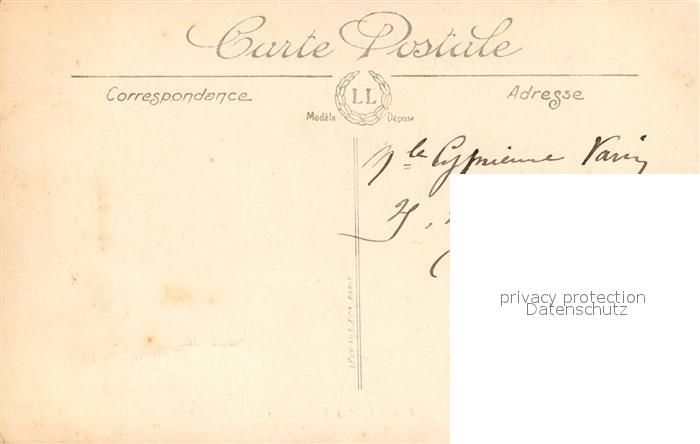 Carte Postale
Correspondance
LL
Adresse
Modèle Déposé
Mlle Cyprienne Varin
25,
privacy protection
Datenschutz